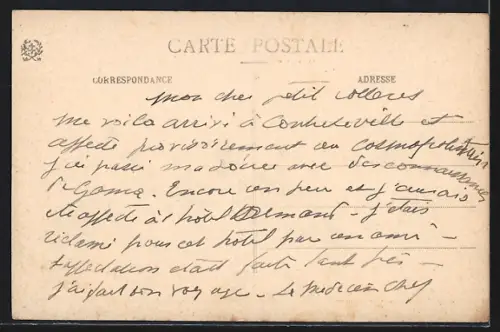 CARTE POSTALE
CORRESPONDANCE
ADRESSE
mon cher petit
me voila arrivé à et
affecté provisoirement au cosmopolitain
j'ai passé ma avec des connaissances
de Encore un peu et j'aurais
été affecté à l'hôtel Normand - j'étais
réclamé pour cet hôtel par un ami -
était faite tant pis -
j'ai fait bon voyage - Le médecin chef